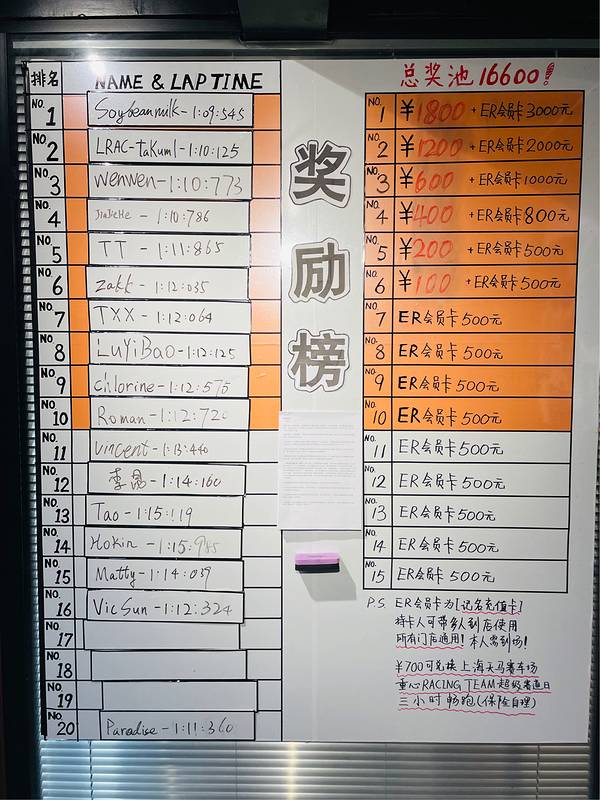 排名 NAME & LAP TIME
NO. 1 Soybeanmilk-1:09:545
NO. 2 LRAC-takumi-1:10:125
NO. 3 Wenwen-1:10:773
NO. 4 JiaJieHe - 1:10:786
NO. 5 TT - 1:11:865
NO. 6 Zakk - 1:12:035
NO. 7 TXX - 1:12:064
NO. 8 LuYiBao-1:12:125
NO. 9 chlorine-1:12:575
NO. 10 Roman-1:12:720
NO. 11 Vincent-1:13:440
NO. 12 1:14:160
NO. 13 Tao-1:15:119
NO. 14 Hokin-1:15:985
NO. 15 Matty-1:14:039
NO. 16 Vic Sun-1:12:324
NO. 17
NO. 18
NO. 19
NO. 20 Paradise-1:11:360
奖
励
榜
总奖池16600!
NO. 1 ¥1800 +ER会员卡3000元
NO. 2 ¥1200 +ER会员卡2000元
NO. 3 ¥600 +ER会员卡1000元
NO. 4 ¥400 +ER会员卡800元
NO. 5 ¥200 +ER会员卡500元
NO. 6 ¥100 +ER会员卡500元
NO. 7 ER会员卡500元
NO. 8 ER会员卡500元
NO. 9 ER会员卡500元
NO. 10 ER会员卡500元
NO. 11 ER会员卡500元
NO. 12 ER会员卡500元
NO. 13 ER会员卡500元
NO. 14 ER会员卡500元
NO. 15 ER会员卡500元
P.S ER会员卡为[记名充值卡]
持卡人可带多人到店使用
所有门店通用!本人需到场!
¥700可兑换上海天马赛车场
重心RACING TEAM超级赛道日
三小时畅跑(保险自理)